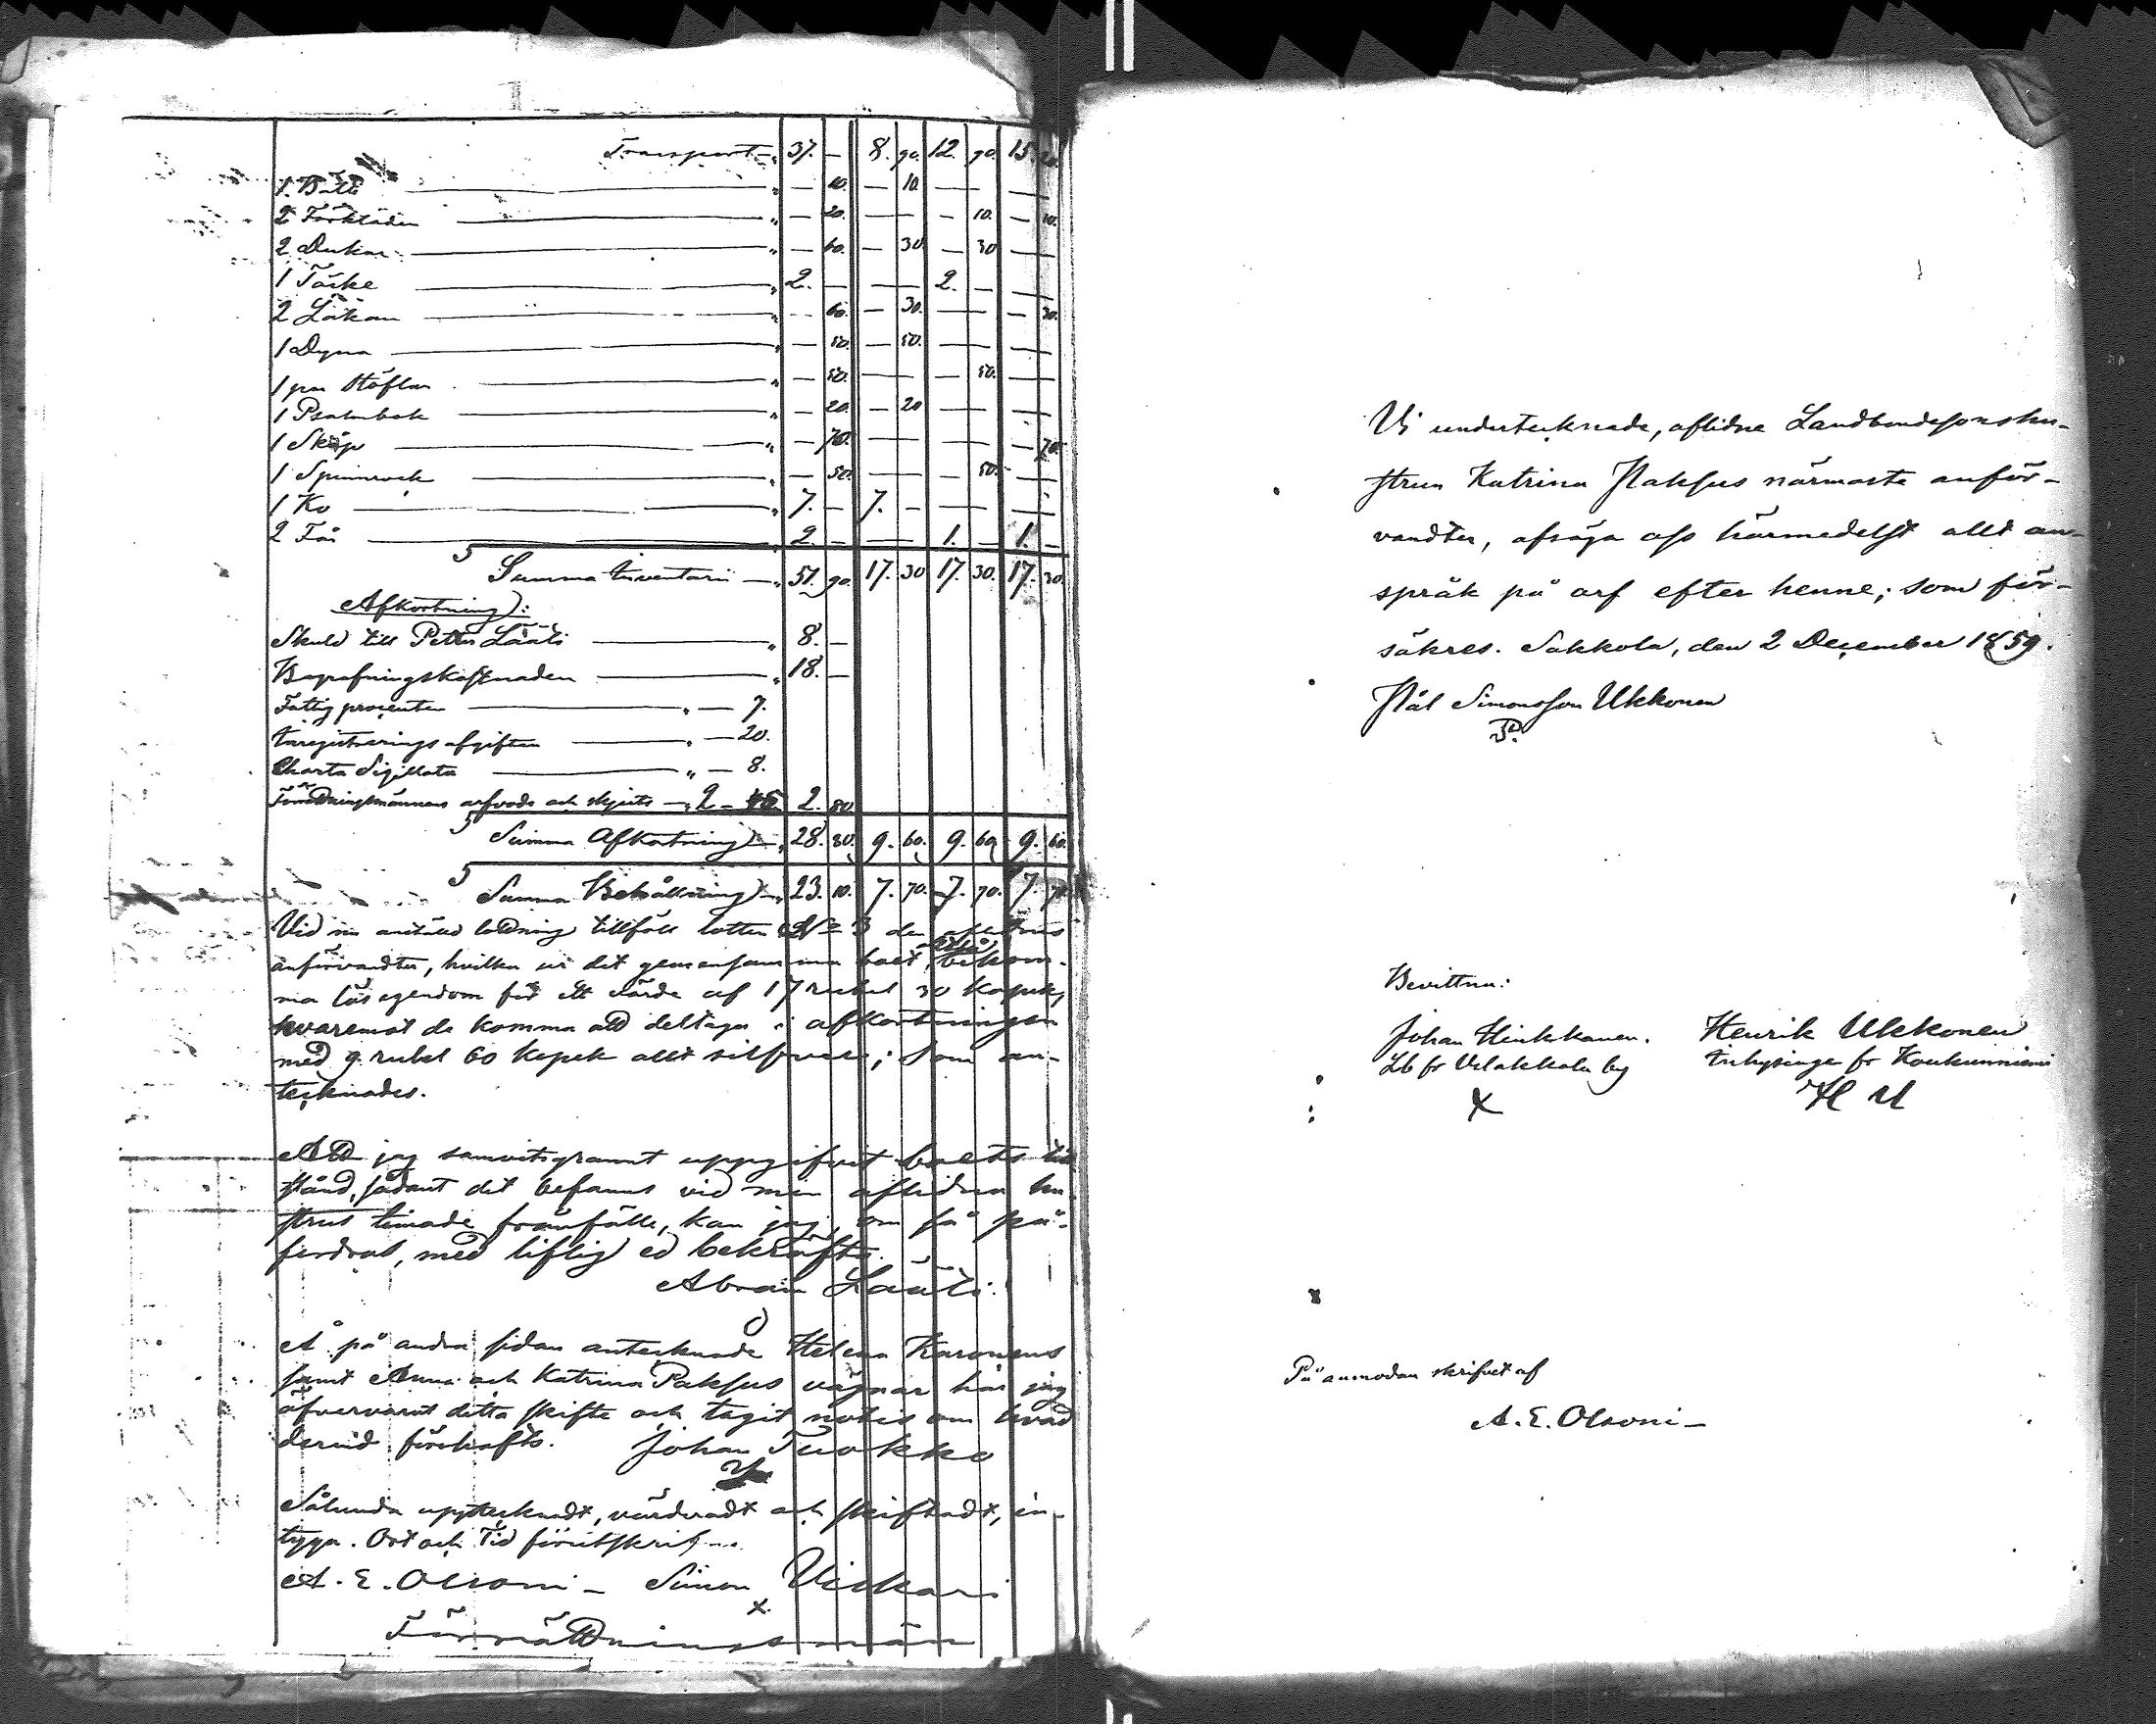 Transport — „ 37. — 8. 90. 12. 90. 15. 20.
1 Bälte — „ — 10. — 10. — —
2 Förkläden — „ — 20. — — 10. — 10.
2 Dukar — „ — 60. — 30 — 30 —
1 Täcke — „ 2. — — 2. — —
2 Lakan — „ — 60. — 30. — — 30.
1 Dyna — „ — 50. — 50. — —
1 par Stöflar — „ — 50. — — 50. —
1 Psalmbok — „ — 20. — 20 — —
1 Skåp — „ — 70. — — — 70.
1 Spinnrock — „ — 50. — — 50. —
1 Ko — „ 7. — 7. — — —
2 Får — „ 2. — — 1. — 1. —
Summa Inventarii — „ 51. 90. 17. 30 17. 30. 17. 30.
Afkortning:
Skuld till Petter Lääti — „ 8. —
Begrafningskostnaden — „ 18. —
Fattig procenten — „ — 7.
Inregistrerings afgiften — „ — 20.
Charta Sigillata — „ — 8.
Förrättningsmännens arfvode och skjuts — „ 2 – 45 2. 80
Summa Afkortning — „ 28. 80. 9. 60. 9. 60 9. 60.
Summa Behållning — „ 23. 10. 7. 70. 7. 70. 7. 70.
Vid nu anställd lottning tillföll lotten N:o 3 den aflidnas
anförvandter, hvilka ur det gemensamma boet bekom-
ma lös egendom för ett värde af 17 rubel 30 kopek,
hvaremot de komma att deltaga i afkortningen
med 9 rubel 60 kopek allt silfver; som an-
tecknades.
Att jag samvetsgrannt uppgifvit boets till
stånd, sådant det befanns vid min aflidna hu
strus timade frånfälle, kan jag, om så på-
fordras, med liflig ed bekräfta.
Abram Lääti.
Å på andra sidan antecknade Helena Karonens
samt Anna och Katrina Paksus vägnar har jag
öfvervarit detta skifte och tagit notis om hvad
dervid förehafts. Johan Tuokko
Sålunda upptecknadt, värderadt och skiftadt, in-
tyga. Ort och Tid förutskrif...
A. E. Olsoni – Simon Viskari
x
Förrättningsmän
Vi undertecknade, aflidne Landbondesonshu-
strun Katrina Paksus närmaste anför-
vandter, afsäga oss härmedelst allt an-
språk på arf efter henne; som för-
säkres. Sakkola, den 2 December 1859.
Pål Simonsson Ukkonen
P.
Bevittna:
Johan Hinkkanen. Henrik Ukkonen
Lb fr Velakkala by Inhysinge fr Koukunniemi
X H U
På anmodan skrifvet af
A. E. Olsoni –